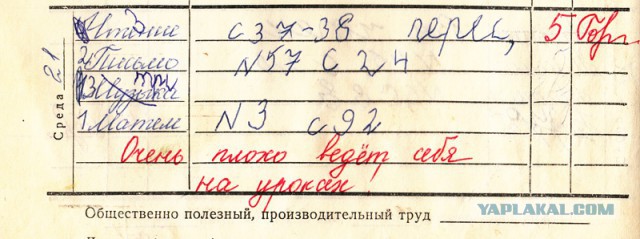 Среда 21
Чтение с 37-38 перес, 5 Горг
2 Письмо N57 с 24
3 Музыка
1 Матем N3 с92
Очень плохо ведёт себя
на уроках
Общественно полезный, производительный труд
YAPLAKAL.COM